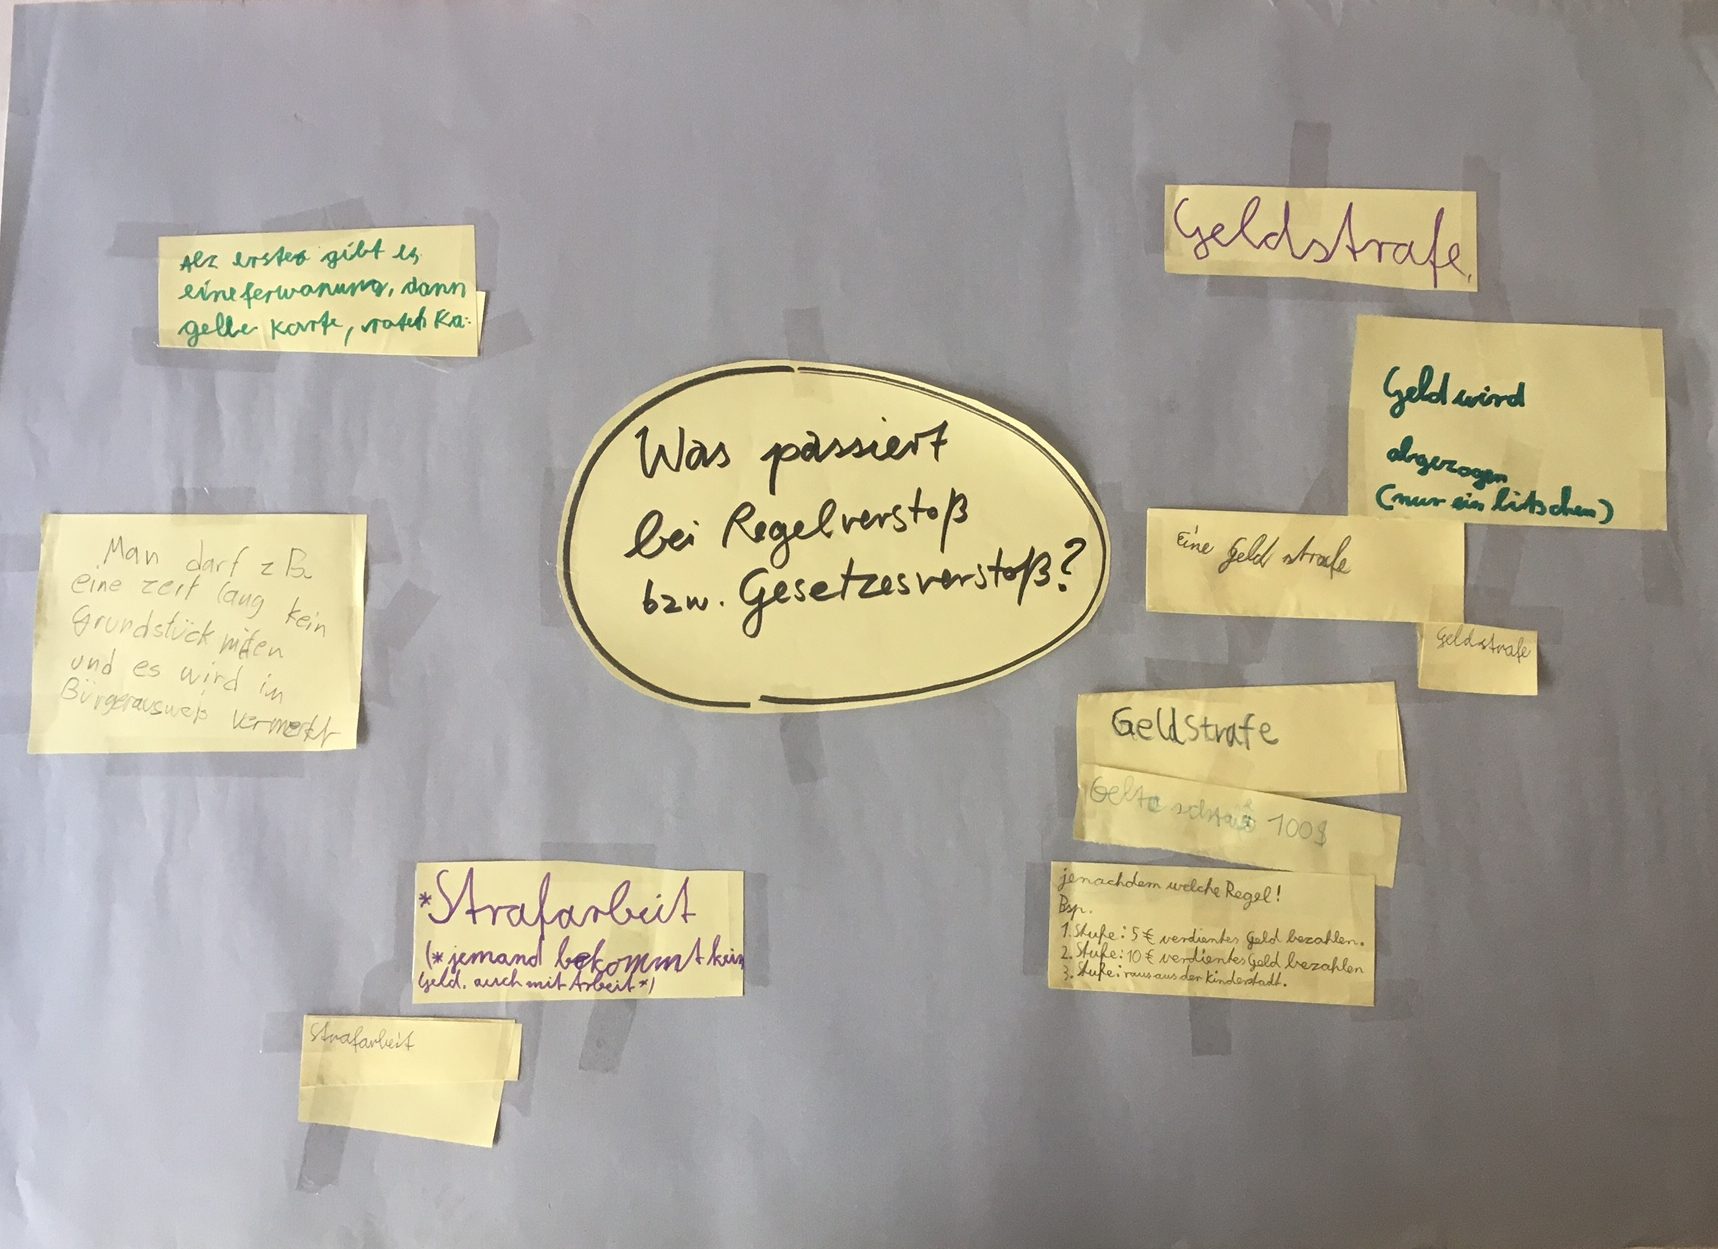 Was passiert
bei Regelverstoß
bzw. Gesetzesverstoß?
Als erstes gibt es
eine ferwanung, dann
gelbe Karte, rote Ka.
Man darf z B.
eine zeit lang kein
Grundstück miten
und es wird im
Bürgerausweis vermerkt
*Strafarbeit
(*jemand bekommt kein
Geld. auch mit Arbeit*)
Strafarbeit
Geldstrafe.
Geld wird
abgezogen
(nur ein bitschen)
Eine Geld strafe
Geldstrafe
Geldstrafe
100$
jenachdem welche Regel!
Bsp.
1. Stufe: 5 € verdientes Geld bezahlen.
2. Stufe: 10 € verdientes Geld bezahlen
3. Stufe: raus aus der Kinderstadt.